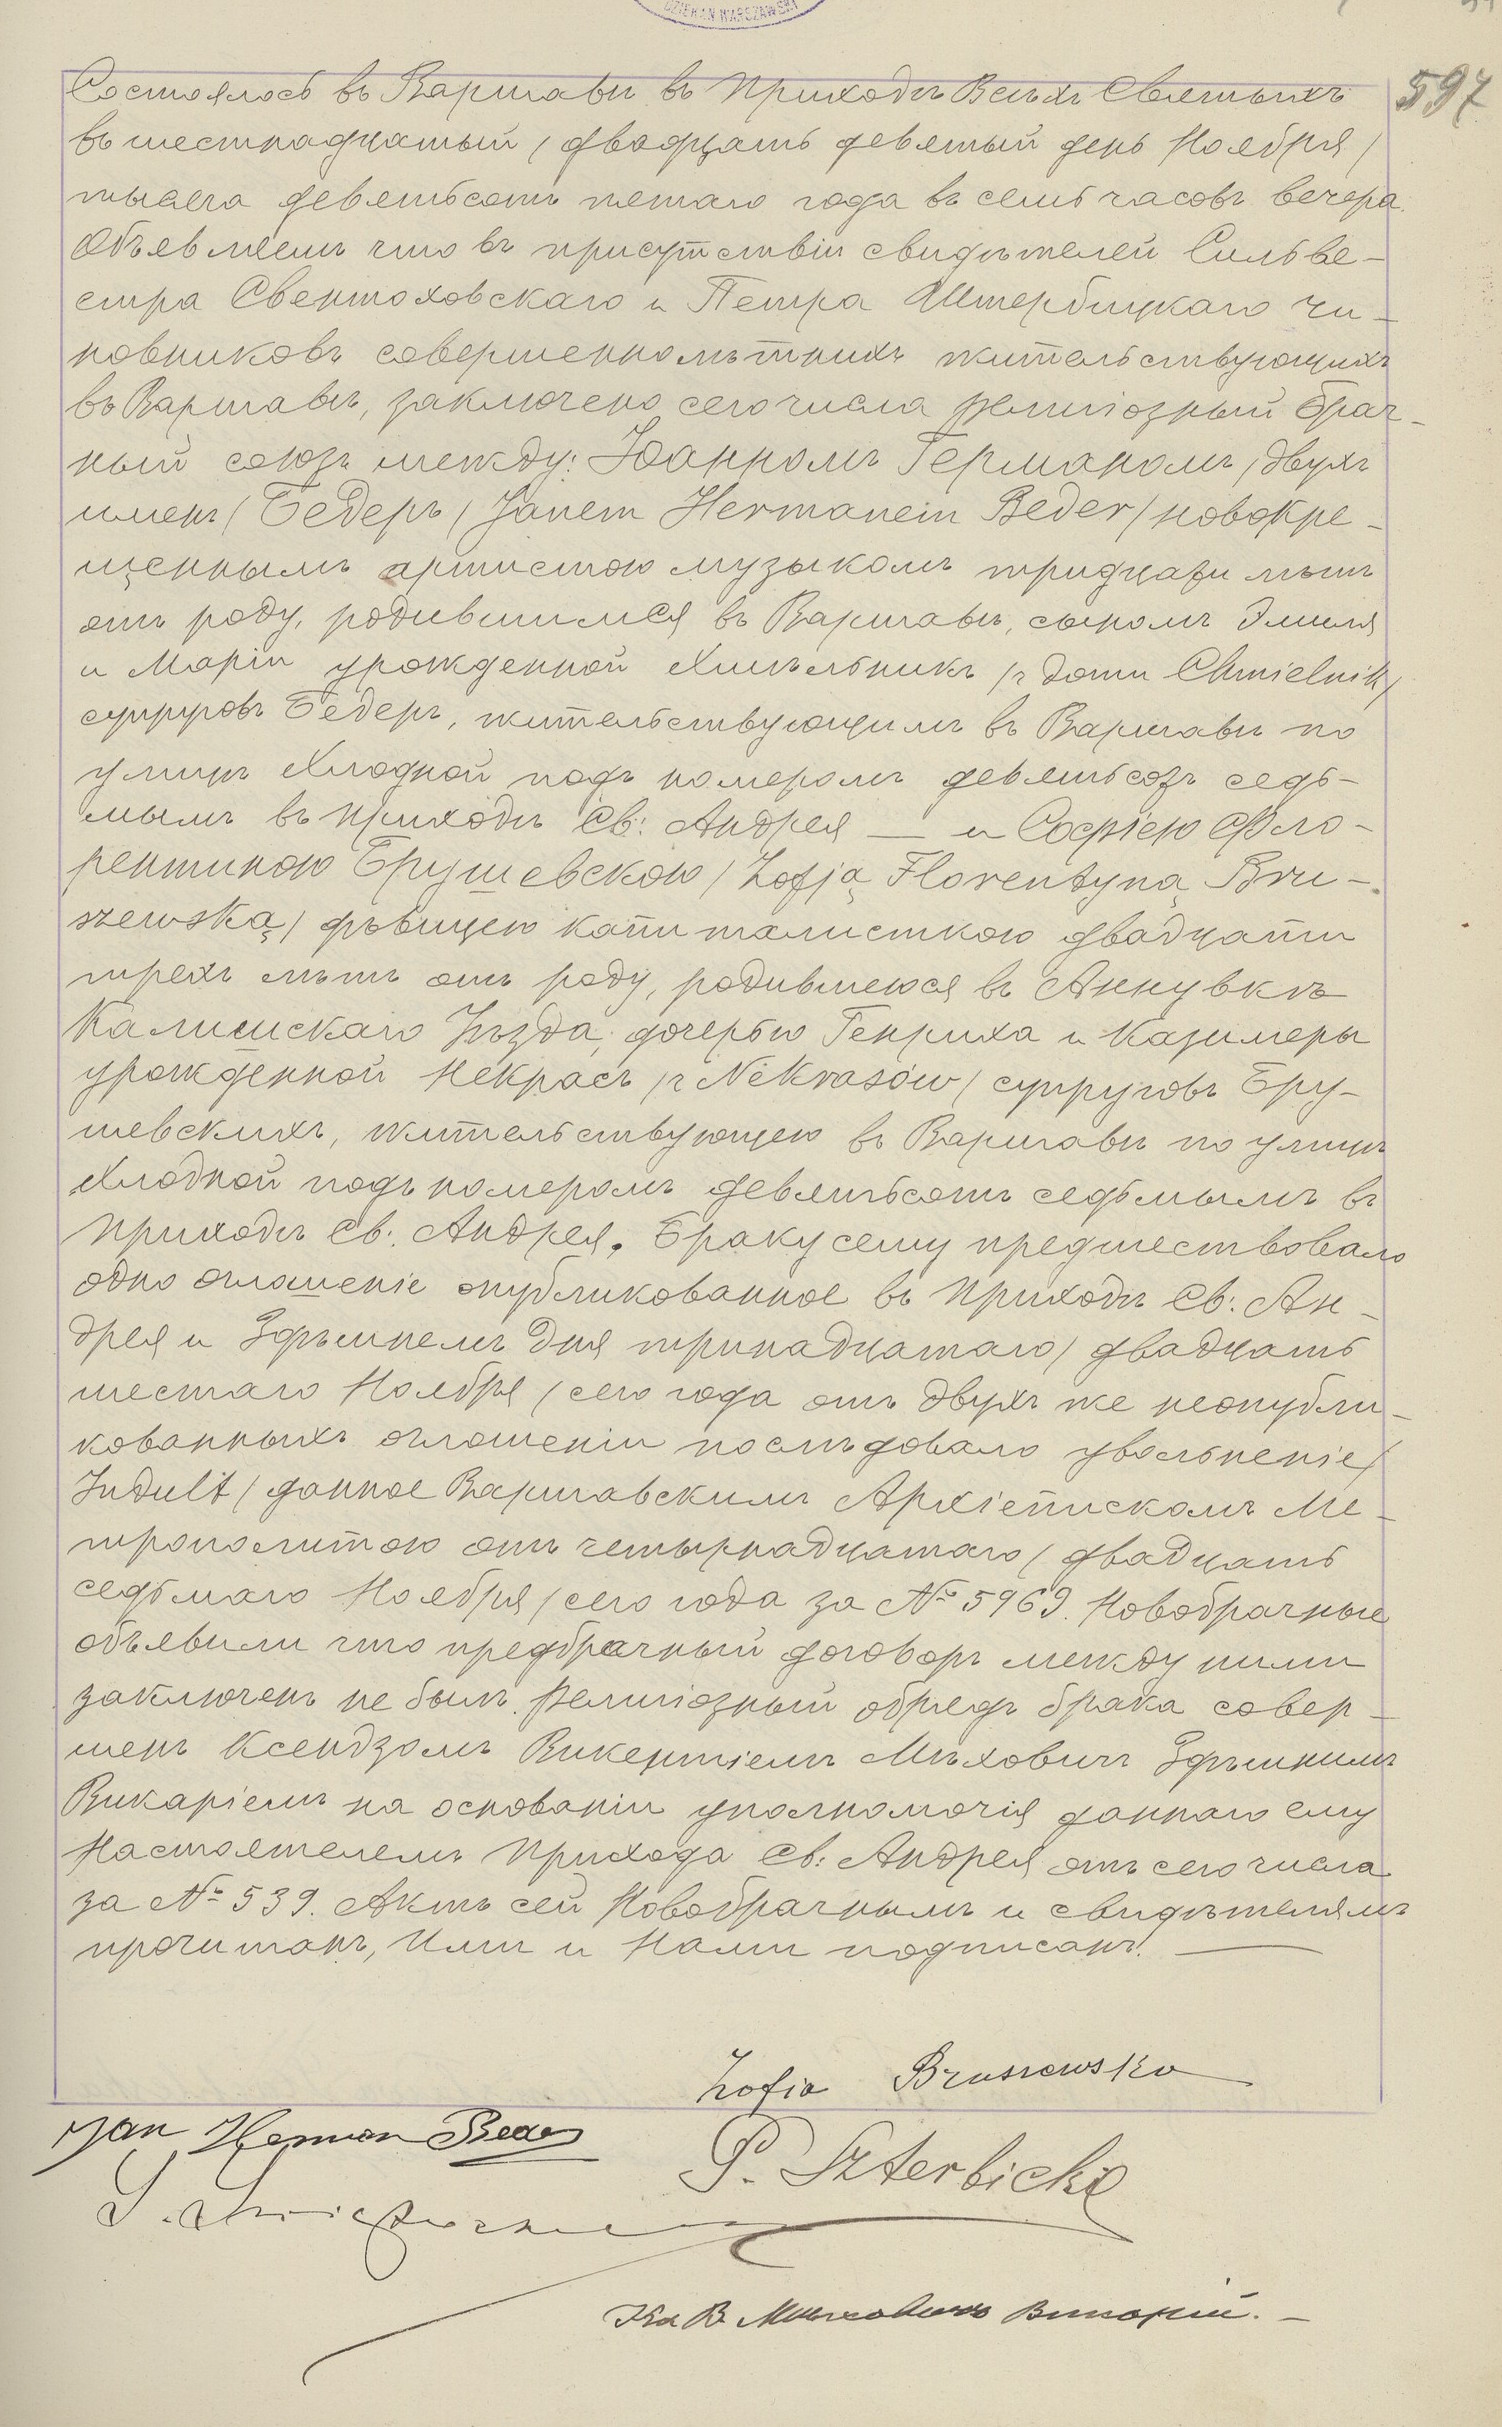 DZIEKAN WARSZAWSKI
597
Состоялось въ Варшавѣ въ Приходѣ Всѣхъ Святыхъ
въ шестнадцатый / двадцать девятый день Ноября /
тысяча девятьсотъ пятаго года въ семь часовъ вечера.
Объявляемъ что въ присутствіи свидѣтелей Сильве-
стра Свентоховскаго и Петра Штербицкаго чи-
новниковъ совершеннолѣтнихъ жительствующихъ
въ Варшавѣ, заключено сего числа религіозный брач-
ный союзъ между: Іоанномъ Германомъ / двухъ
именъ / Бедеръ / Janem Hermanem Beder / новокре-
щеннымъ артистою музыкомъ тридцати лѣтъ
отъ роду, родившимся въ Варшавѣ, сыномъ Эмиля
и Маріи урожденной Хмѣльникъ / z domu Chmielnik /
супруговъ Бедеръ, жительствующимъ въ Варшавѣ по
улицѣ Хлодной подъ номеромъ девятьсотъ седь-
мымъ въ приходѣ Св: Андрея — и Софіею Фло-
рентиною Брушевскою / Zofją Florentyną Bru-
szewską / дѣвицею капиталисткою двадцати
трехъ лѣтъ отъ роду, родившеюся въ Аннувкѣ
Калишскаго Уѣзда, дочерью Генриха и Казимеры
урожденной Некрасъ / z Nekrasów / супруговъ Бру-
шевскихъ, жительствующею въ Варшавѣ по улицѣ
Хлодной подъ номеромъ девятьсотъ седьмымъ въ
приходѣ Св: Андрея. Браку сему предшествовало
одно оглашеніе опубликованное въ приходѣ Св: Ан-
дрея и Здѣшнемъ Дня тринадцатаго / двадцать
шестаго Ноября / сего года отъ двухъ же неопубли-
кованныхъ оглашеніи послѣдовало увольненіе /
Indult / данное Варшавскимъ Архіепископомъ Ме-
трополитою отъ четырнадцатаго / двадцать
седьмаго Ноября / сего года за № 5969. Новобрачные
объявили что предбрачный договоръ между ними
заключенъ не былъ. Религіозный обрядъ брака совер-
шенъ Ксендзомъ Викентіемъ Мѣховичъ Здѣшнимъ
Викаріемъ на основаніи уполномочія даннаго ему
Настоятелемъ прихода Св: Андрея отъ сего числа
за № 539. Актъ сей Новобрачнымъ и свидѣтелямъ
прочитанъ, Ими и Нами подписанъ. —
Zofia Bruszewska
Jan Herman Beder
P. Szterbicki
S. Świętochowski
Кс В. Мѣховичъ Викарій. —